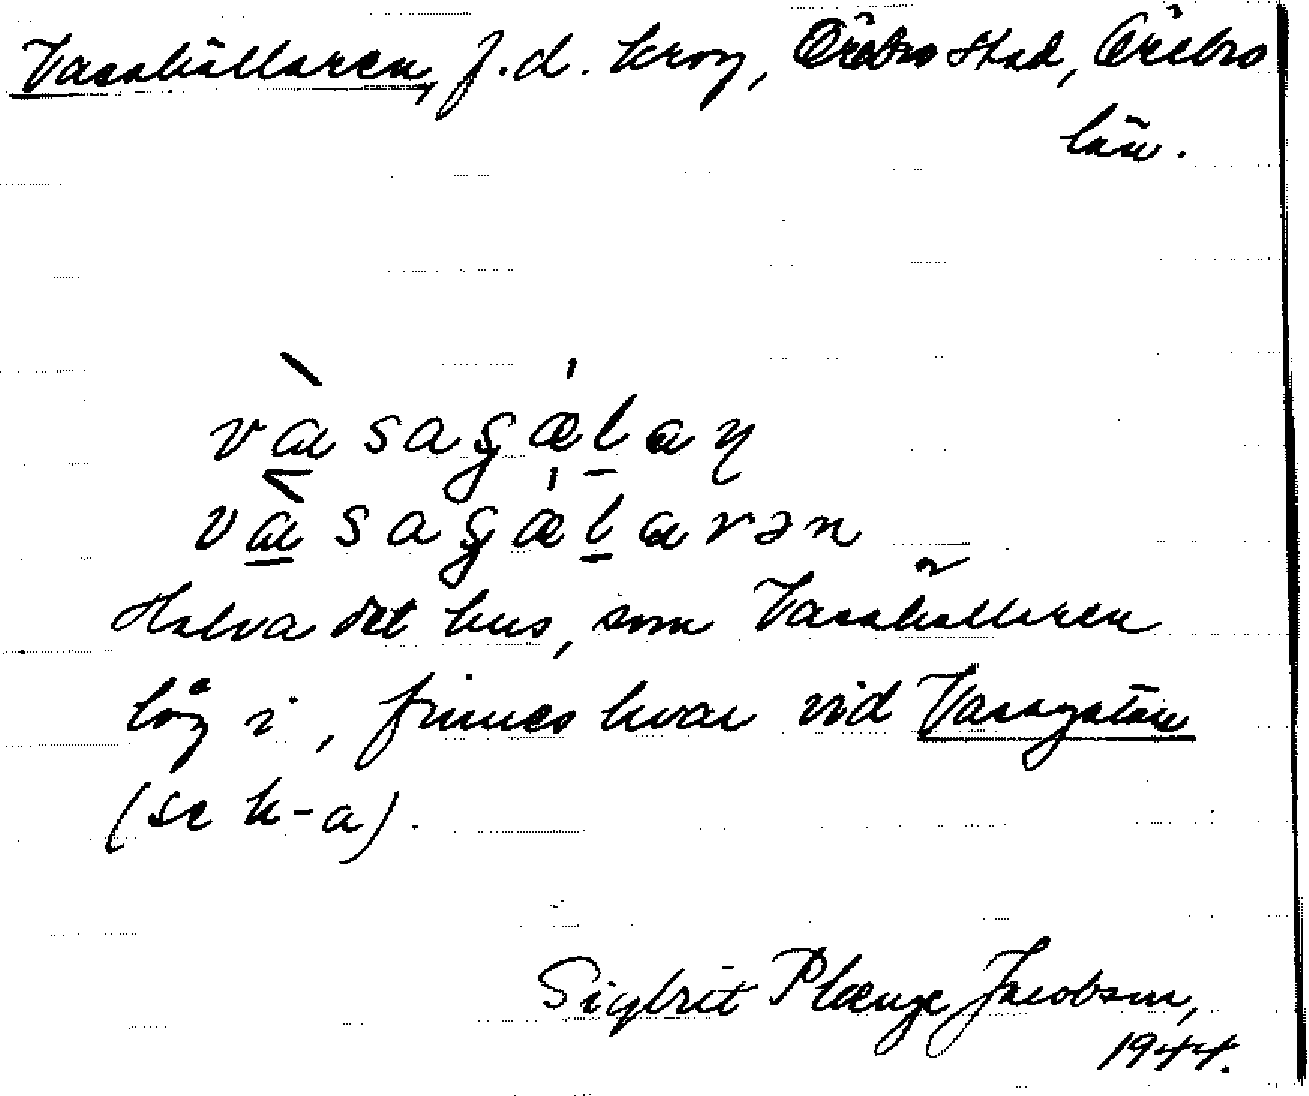 Vasakällaren, f.d. krog, Örebro stad, Örebro
län.
vàsagǽlaŋ
vàsagǽlarən
Halva det hus, som Vasakällaren
låg i, finnes kvar vid Vasagatan
(se k-a).
Sigbrit Plænge Jacobson,
1944.